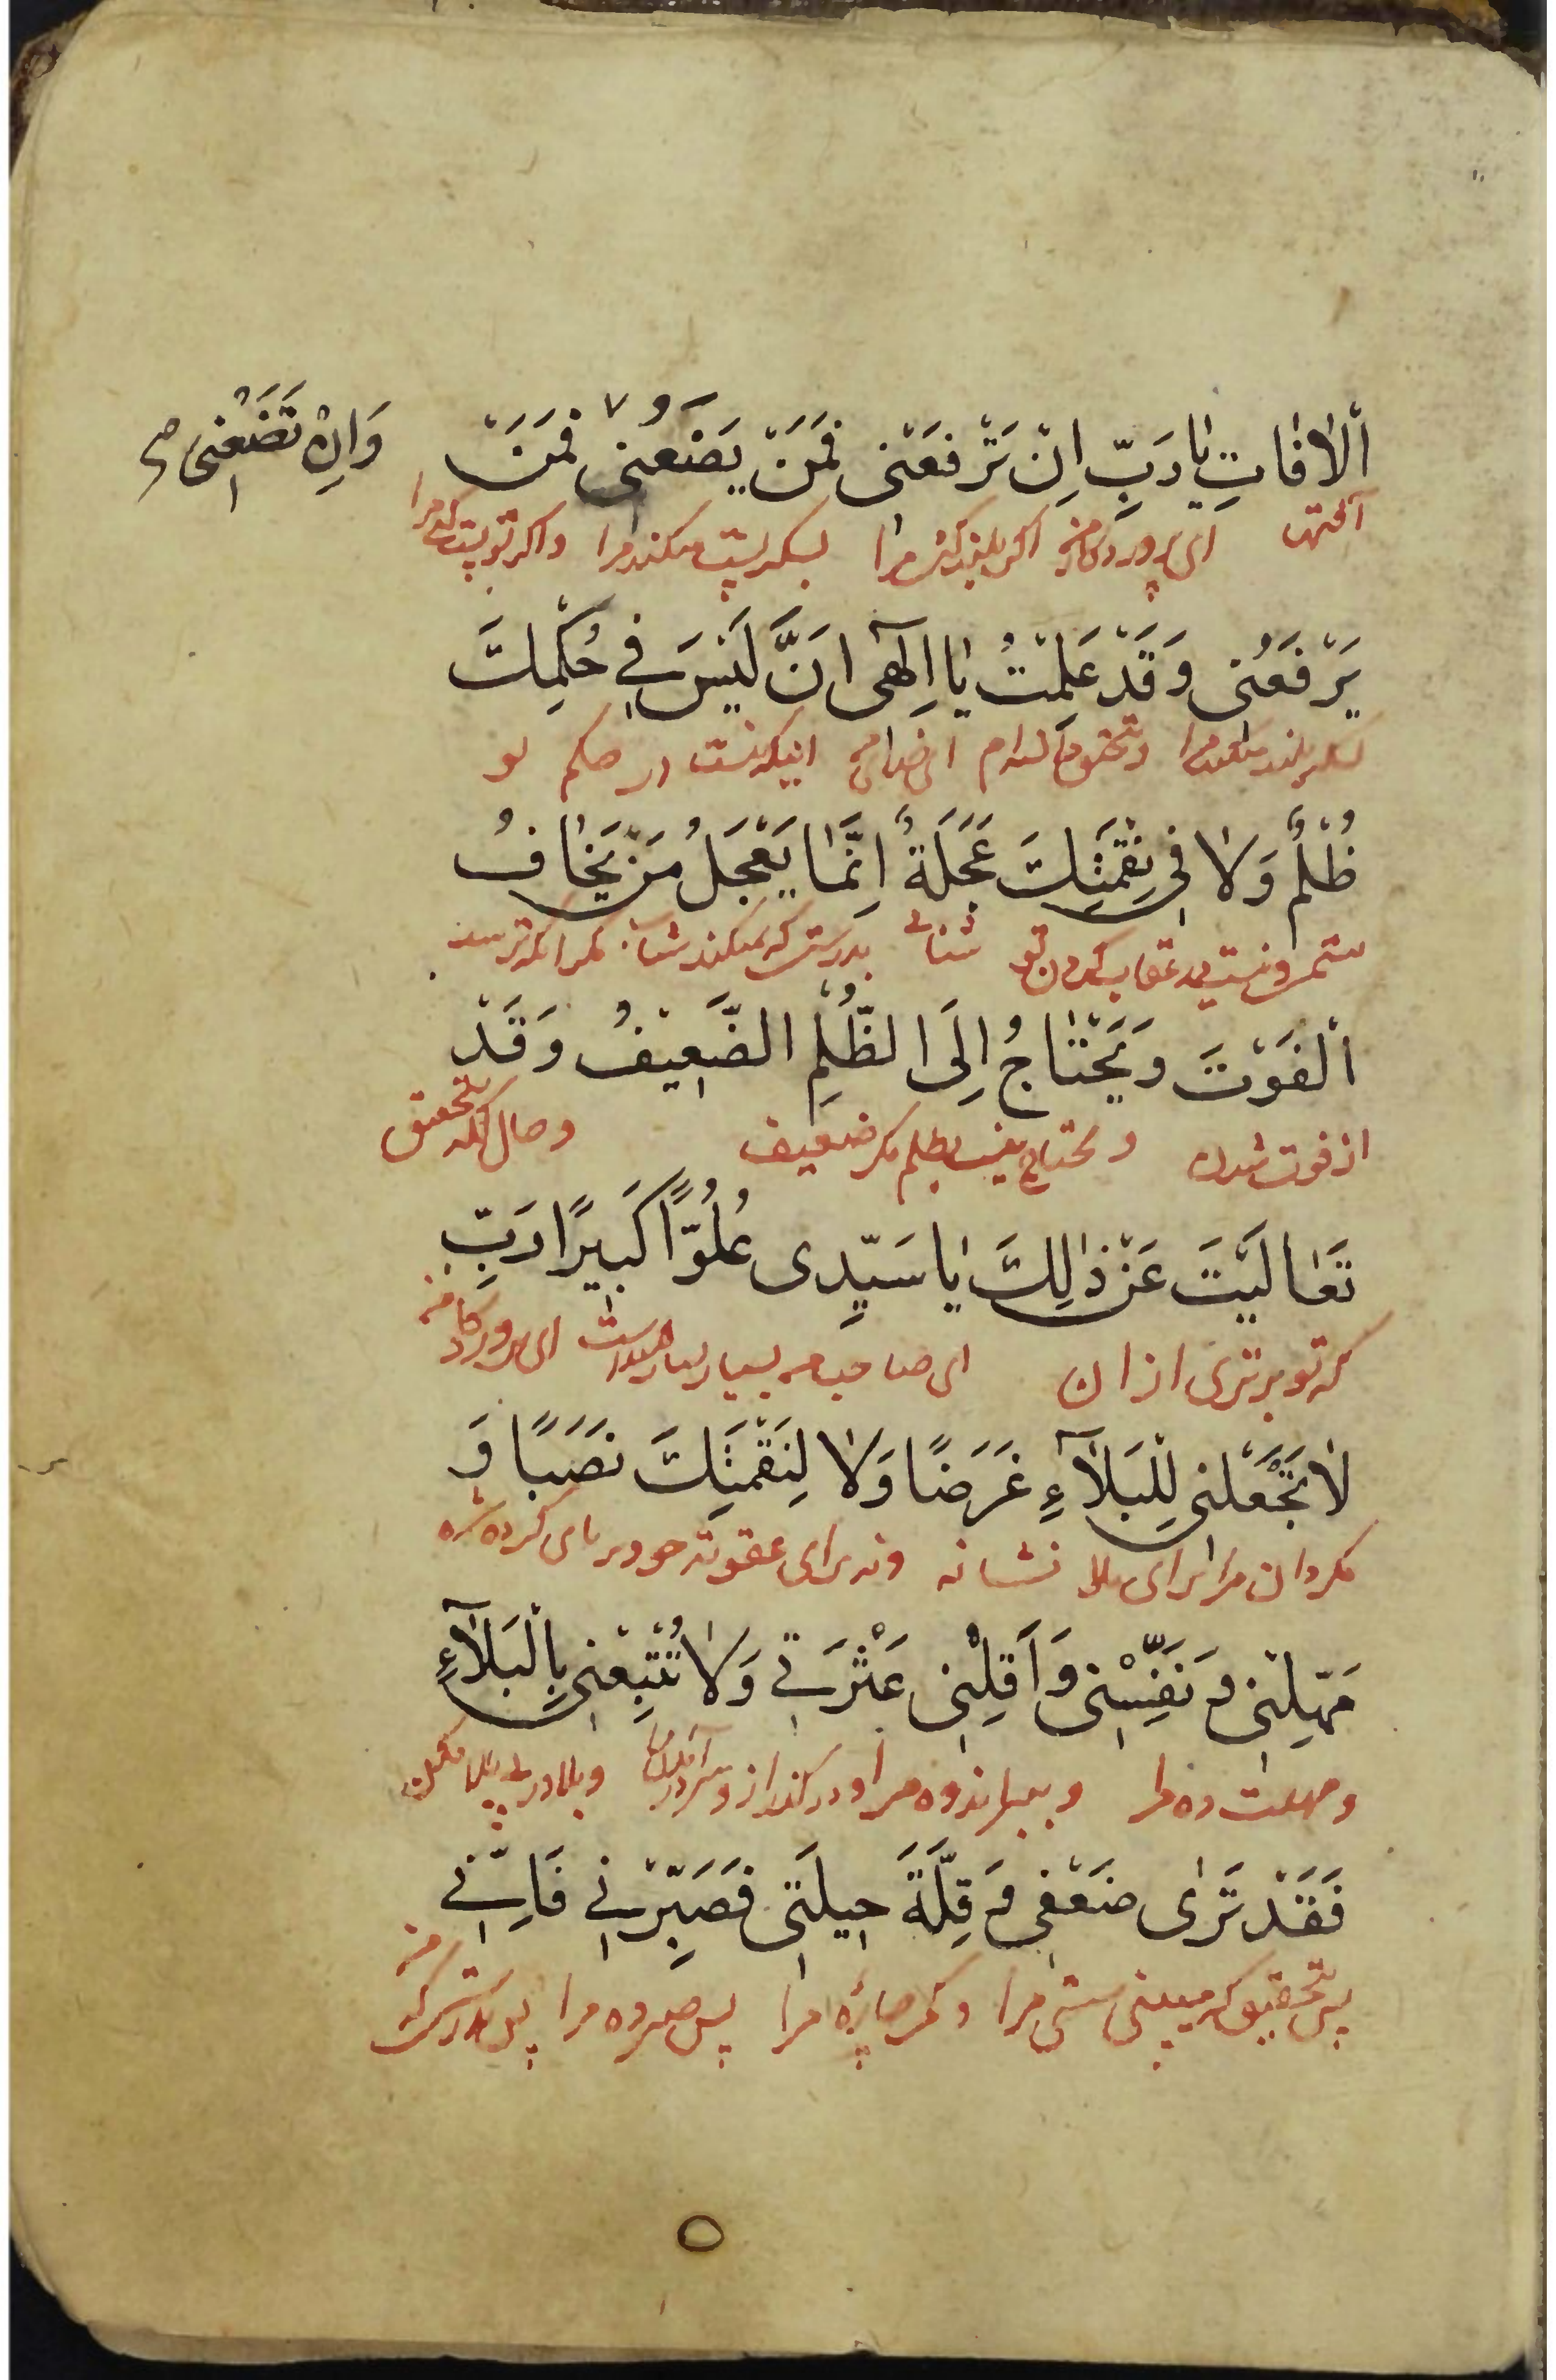 اَلْاٰفٰاتِ يٰا رَبِّ اِنْ تَرْفَعْنى فَمَنْ يَضَعُنى ٧ فَمَنْ
وَاِنْ تَضَعْنى صح
آفتها ای پروردگار من اکر بلند کنی مرا پسکه پست میکند مرا واکر تو پست کنی مرا
يَرْفَعُنى وَقَدْ عَلِمْتُ يٰا اِلٰهٓى اَنَّ لَيْسَ فى حُكْمِكَ
بلند میکند مرا اینکه نیست در حکم تو
ظُلْمٌ وَلاٰ فى نِقْمَتِكَ عَجَلَةٌ اِنَّمٰا يَعْجَلُ مَنْ يَخٰافُ
ستم ونیست در عقاب کردن تو شتابی بدرستی که میکند شتاب مکر انکه ترسد
اَلْفَوْتَ وَيَحْتٰاجُ اِلَى الظُّلْمِ الضَّعيفُ وَقَدْ
از فوت شدن ومحتاج نیست بظلم مکر ضعیف وحال آنکه بتحقیق
تَعٰالَيْتَ عَنْ ذٰلِكَ يٰا سَيِّدى عُلُوًّا كَبيرًا رَبِّ
که تو برتری از ان ای صاحب من بسیار بسیار ای پروردکار من
لاٰ تَجْعَلْنى لِلْبَلآٰءِ غَرَضًا وَلاٰ لِنَقْمَتِكَ نَصَبًا وَ
مکردان مرا برای بلا نشانه ونه برای عقوبت خود بر پای کرده شده
مَهِّلْنى وَ نَفِّسْنى وَ اَقِلْنى عَثْرَتى وَلاٰ تُتْبِعْنى بِالْبَلآٰءِ
ومهلت ده مرا واندوه مرا ودر کذر از وبلا در پی بلا مکن
فَقَدْ تَرٰى ضَعْفى وَ قِلَّةَ حيلَتى فَصَبِّرْنى فَاِنّى
پس بتحقیق که میبینی سستی مرا وکمی چاره مرا پس صبر ده مرا پس بدرستی که من